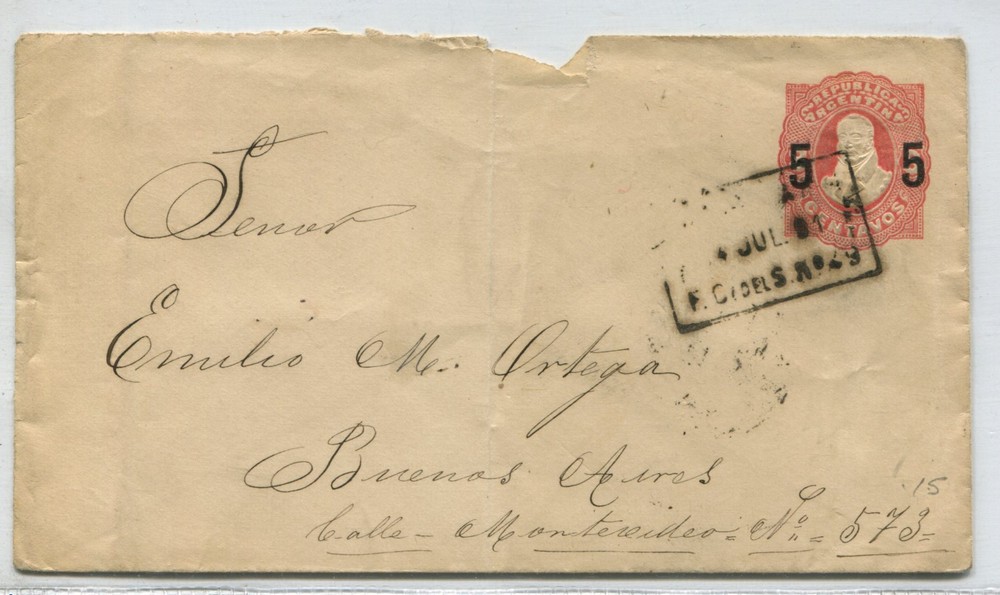 REPUBLICA
ARGENTINA
5 5
CENTAVOS
JUL. 91
F. C. DEL S. Nº 29
Señor
Emilio M. Ortega
Buenos Aires
Calle - Montevideo = Nº = 573 =
15